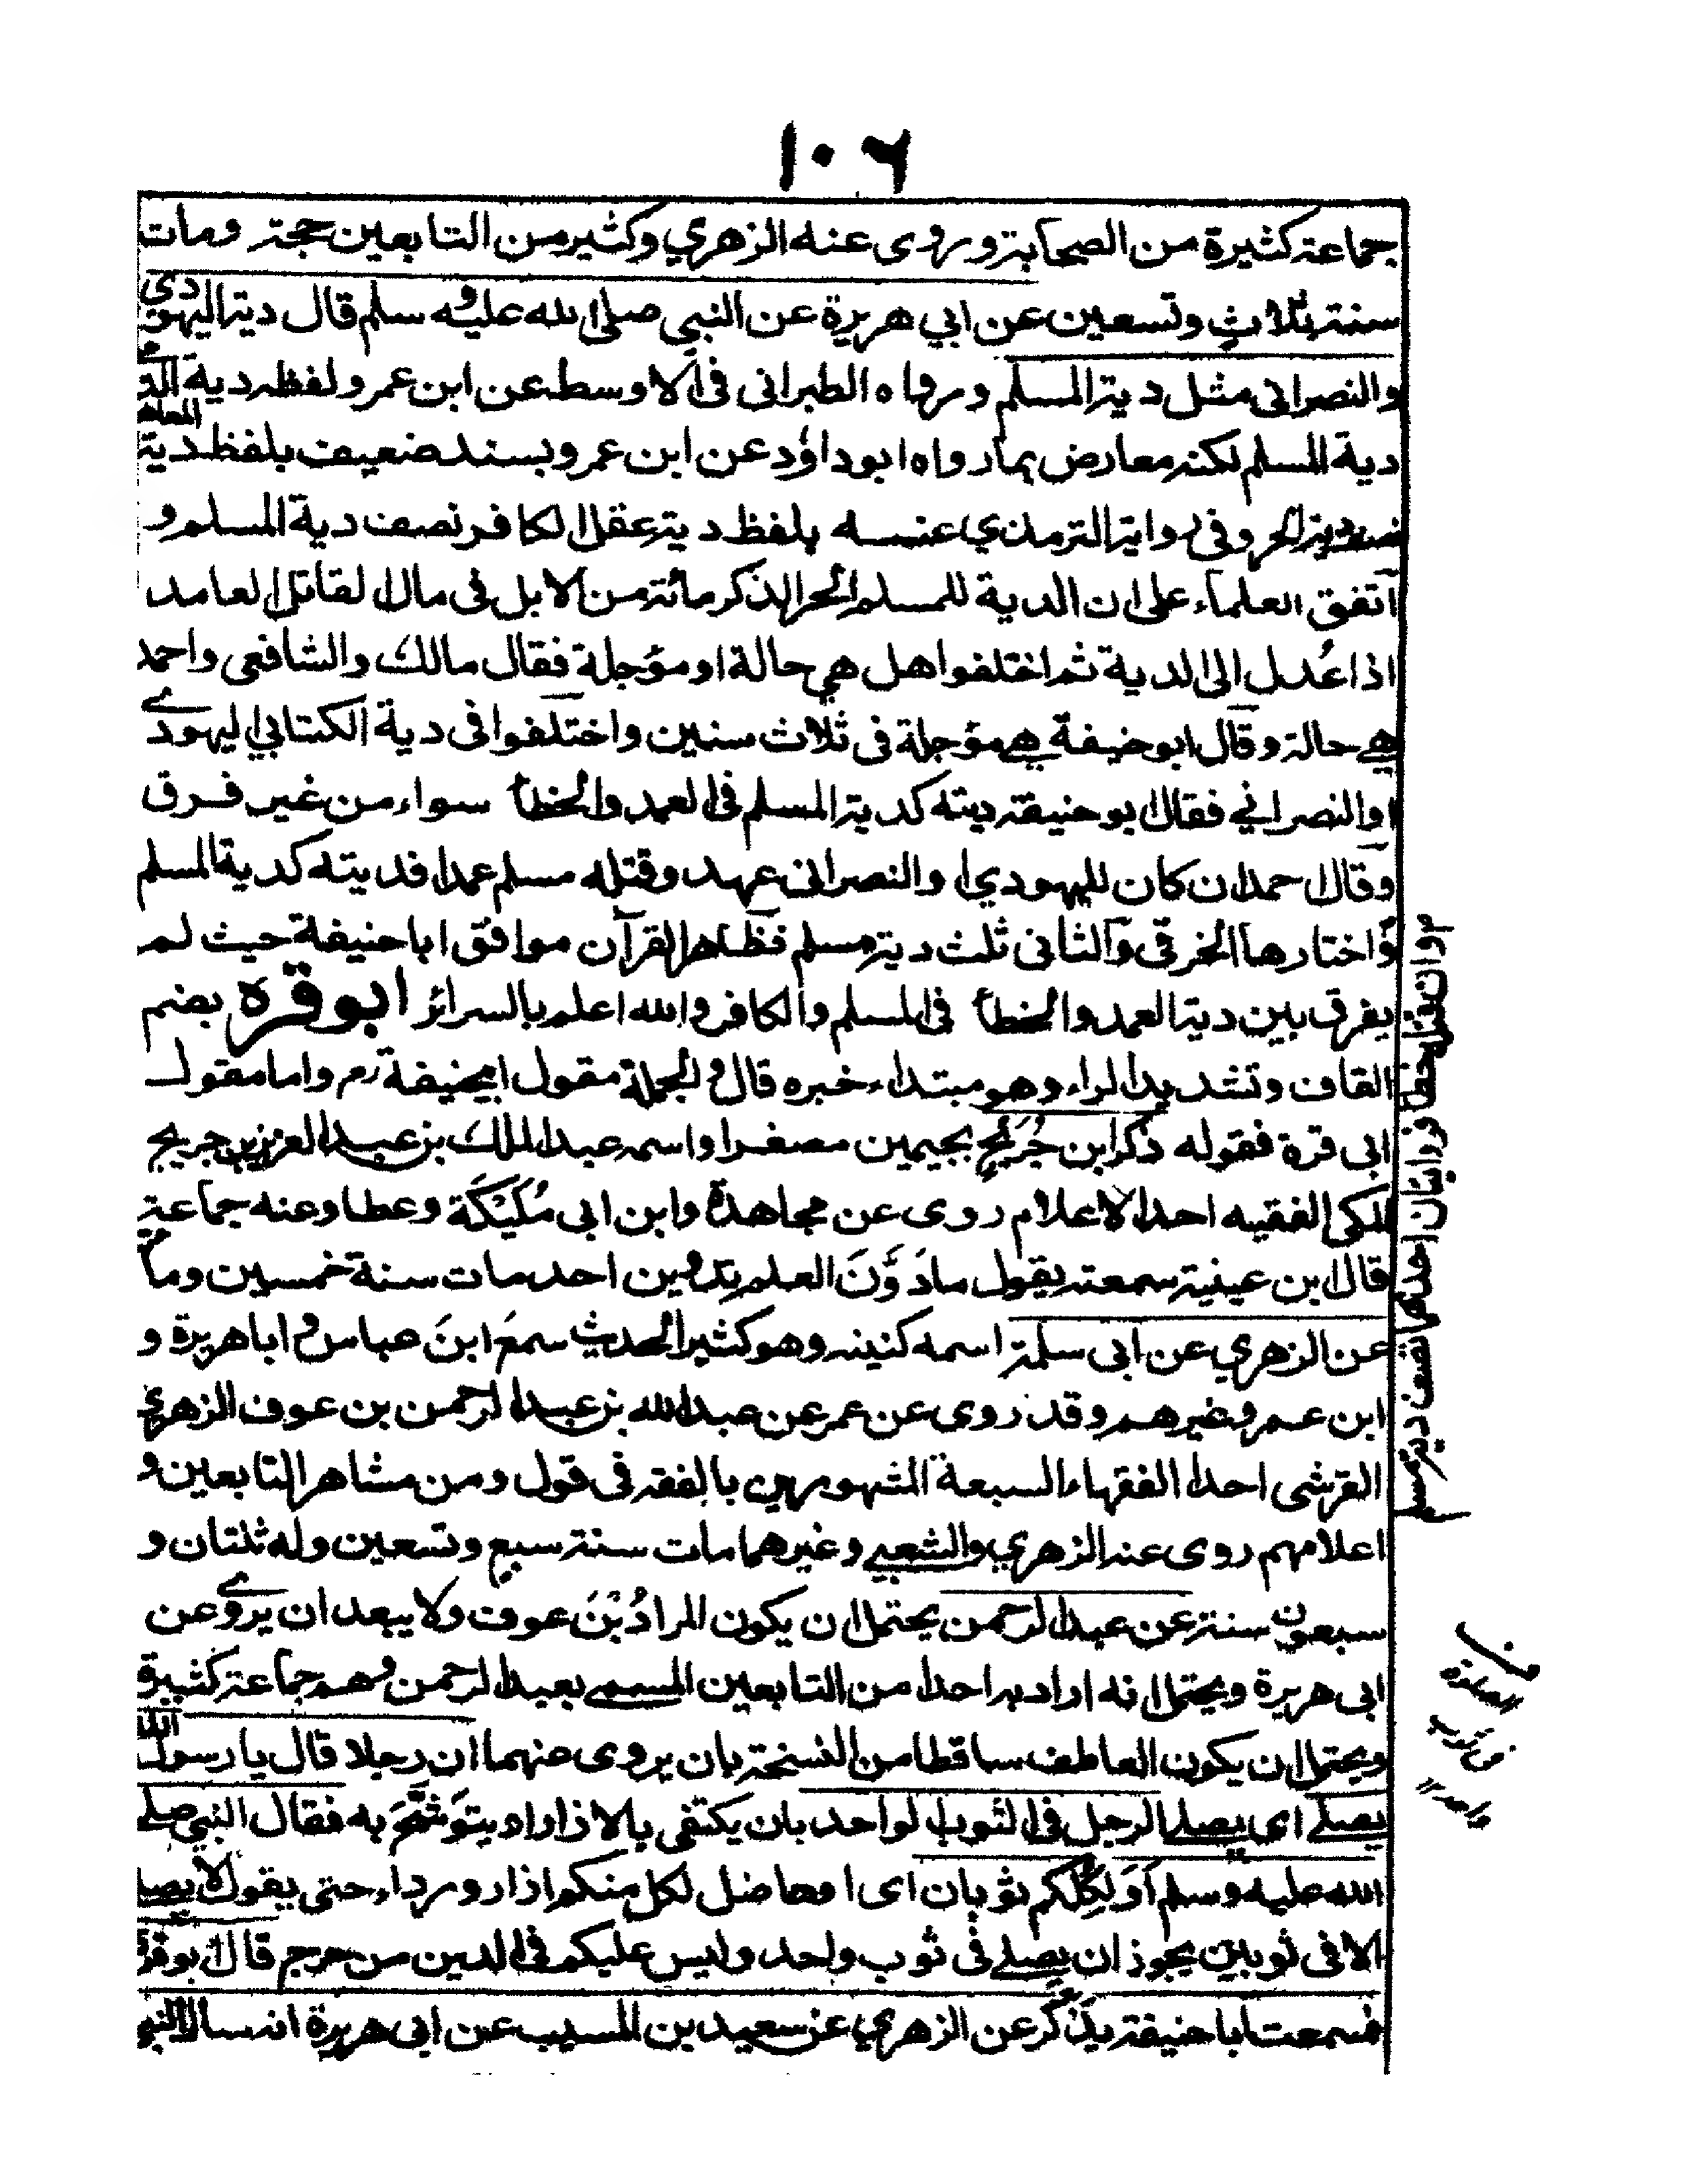 ١٠٦
جماعة كثيرة من الصحابة وروى عنه الزهري وكثير من التابعين حجة ومات
سنة ثلاث وتسعين عن ابي هريرة عن النبي صلى الله عليه وسلم قال دية اليهودي
والنصراني مثل دية المسلم ورواه الطبراني في الاوسط عن ابن عمر ولفظه دية الذمي
دية المسلم لكنه معارض بما رواه ابوداؤد عن ابن عمر وبسند ضعيف بلفظ دية المعاهد
نصف دية الحر وفي رواية الترمذي عنه بلفظ دية عقل الكافر نصف دية المسلم و
اتفق العلماء على ان الدية للمسلم الحر الذكر مائة من الابل في مال القاتل العامد
اذا عُدل الى الدية ثم اختلفوا هل هي حالة او مؤجلة فقال مالك والشافعي واحمد
هي حالة وقال ابو حنيفة هي مؤجلة في ثلاث سنين واختلفوا في دية الكتابي اليهودي
او النصراني فقال ابو حنيفة ديته كدية المسلم في العمد والخطأ سواء من غير فرق
وقال احمد ان كان لليهودي او النصراني عهد وقتله مسلم عمدا فديته كدية المسلم
واختارها الخرقي والثاني ثلث دية مسلم فظاهر القرآن موافق ابا حنيفة حيث لم
يفرق بين دية العمد والخطأ في المسلم والكافر والله اعلم بالسرائر ابو قره بضم
القاف وتشديد الراء وهو مبتداء خبره قال والجملة مقول ابي حنيفة رم واما مقول
ابي قرة فقوله ذكر ابن جُرَيْج بجيمين مصغرا واسمه عبد الملك بن عبد العزيز بن جريج
المكي الفقيه احد الاعلام روى عن مجاهدة وابن ابي مُلَيْكَة وعطا وعنه جماعة
قال ابن عينية سمعته يقول ما دَوَّنَ العلم تدوين احد مات سنة خمسين ومائة
عن الزهري عن ابي سلمة اسمه كنيته وهو كثير الحديث سمعَ ابنَ عباس و ابا هريرة و
ابن عمر وغيرهم وقد روى عن عمر عن عبد الله بن عبد الرحمن بن عوف الزهري
القرشي احد الفقهاء السبعة المشهورين بالفقه في قول ومن مشاهر التابعين و
اعلامهم روى عنه الزهري والشعبي وغيرهما مات سنة سبع وتسعين وله ثلثتان و
سبعون سنة عن عبد الرحمن يحتمل ان يكون المرادُ بْنَ عوف ولا يبعد ان يروي عن
ابي هريرة ويحتمل انه اراد به احدا من التابعين المسمى بعبد الرحمن وهم جماعة كثيرة
ويحتمل ان يكون العاطف ساقطا من النسخة بان يروى عنهما ان رجلا قال يا رسول الله
يصلي اي يصلي الرجل في الثوب الواحد بان يكتفي بالازار او بتَوَشُّح به فقال النبي صلى
الله عليه وسلم اَوَ لِكُلِّكم ثوبان اي اما حاصل لكل منكم ازار ورداء حتى يقول لا يصلي
الا في ثوبين يجوز ان يصلي في ثوب واحد وليس عليكم في الدين من حرج قال ابو قرة
فسمعت ابا حنيفة يذكر عن الزهري عن سعيد بن المسيب عن ابي هريرة انه سال النبي
وان قتل خطأ فروايتان احداهما نصف دية مسلم
الصلوة
في ثوب
واحد